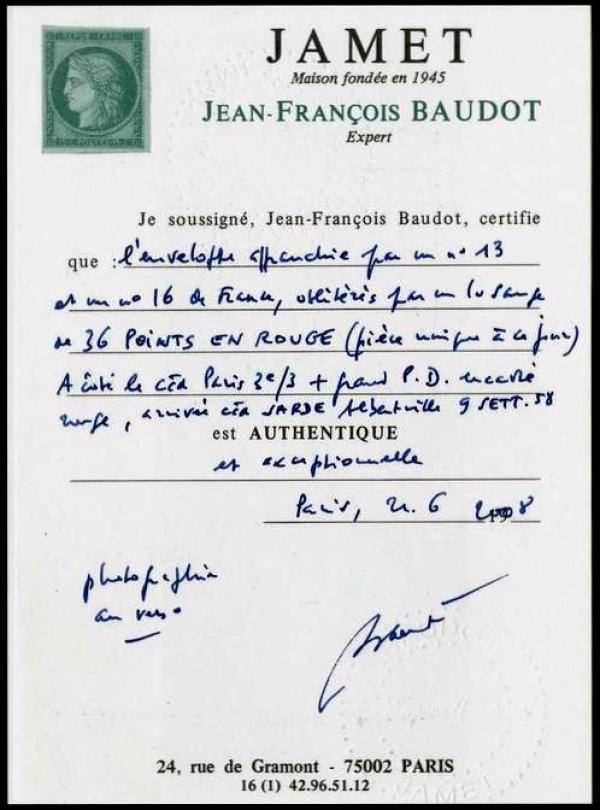 REPUB. FRANC.
JAMET
Maison fondée en 1945
JEAN-FRANÇOIS BAUDOT
Expert
Je soussigné, Jean-François Baudot, certifie
que : l'enveloppe affranchie par un n° 13
et un n° 16 de France, oblitérés par un losange
de 36 POINTS EN ROUGE (pièce unique à ce jour)
A côté le càd Paris 3e/3 + grand P.D. encadré
rouge, arrivée càd SARDE Albertville 9 SETT. 58
est AUTHENTIQUE
et exceptionnelle
Paris, 21. 6 2008
photographie
au verso
24, rue de Gramont - 75002 PARIS
16 (1) 42.96.51.12